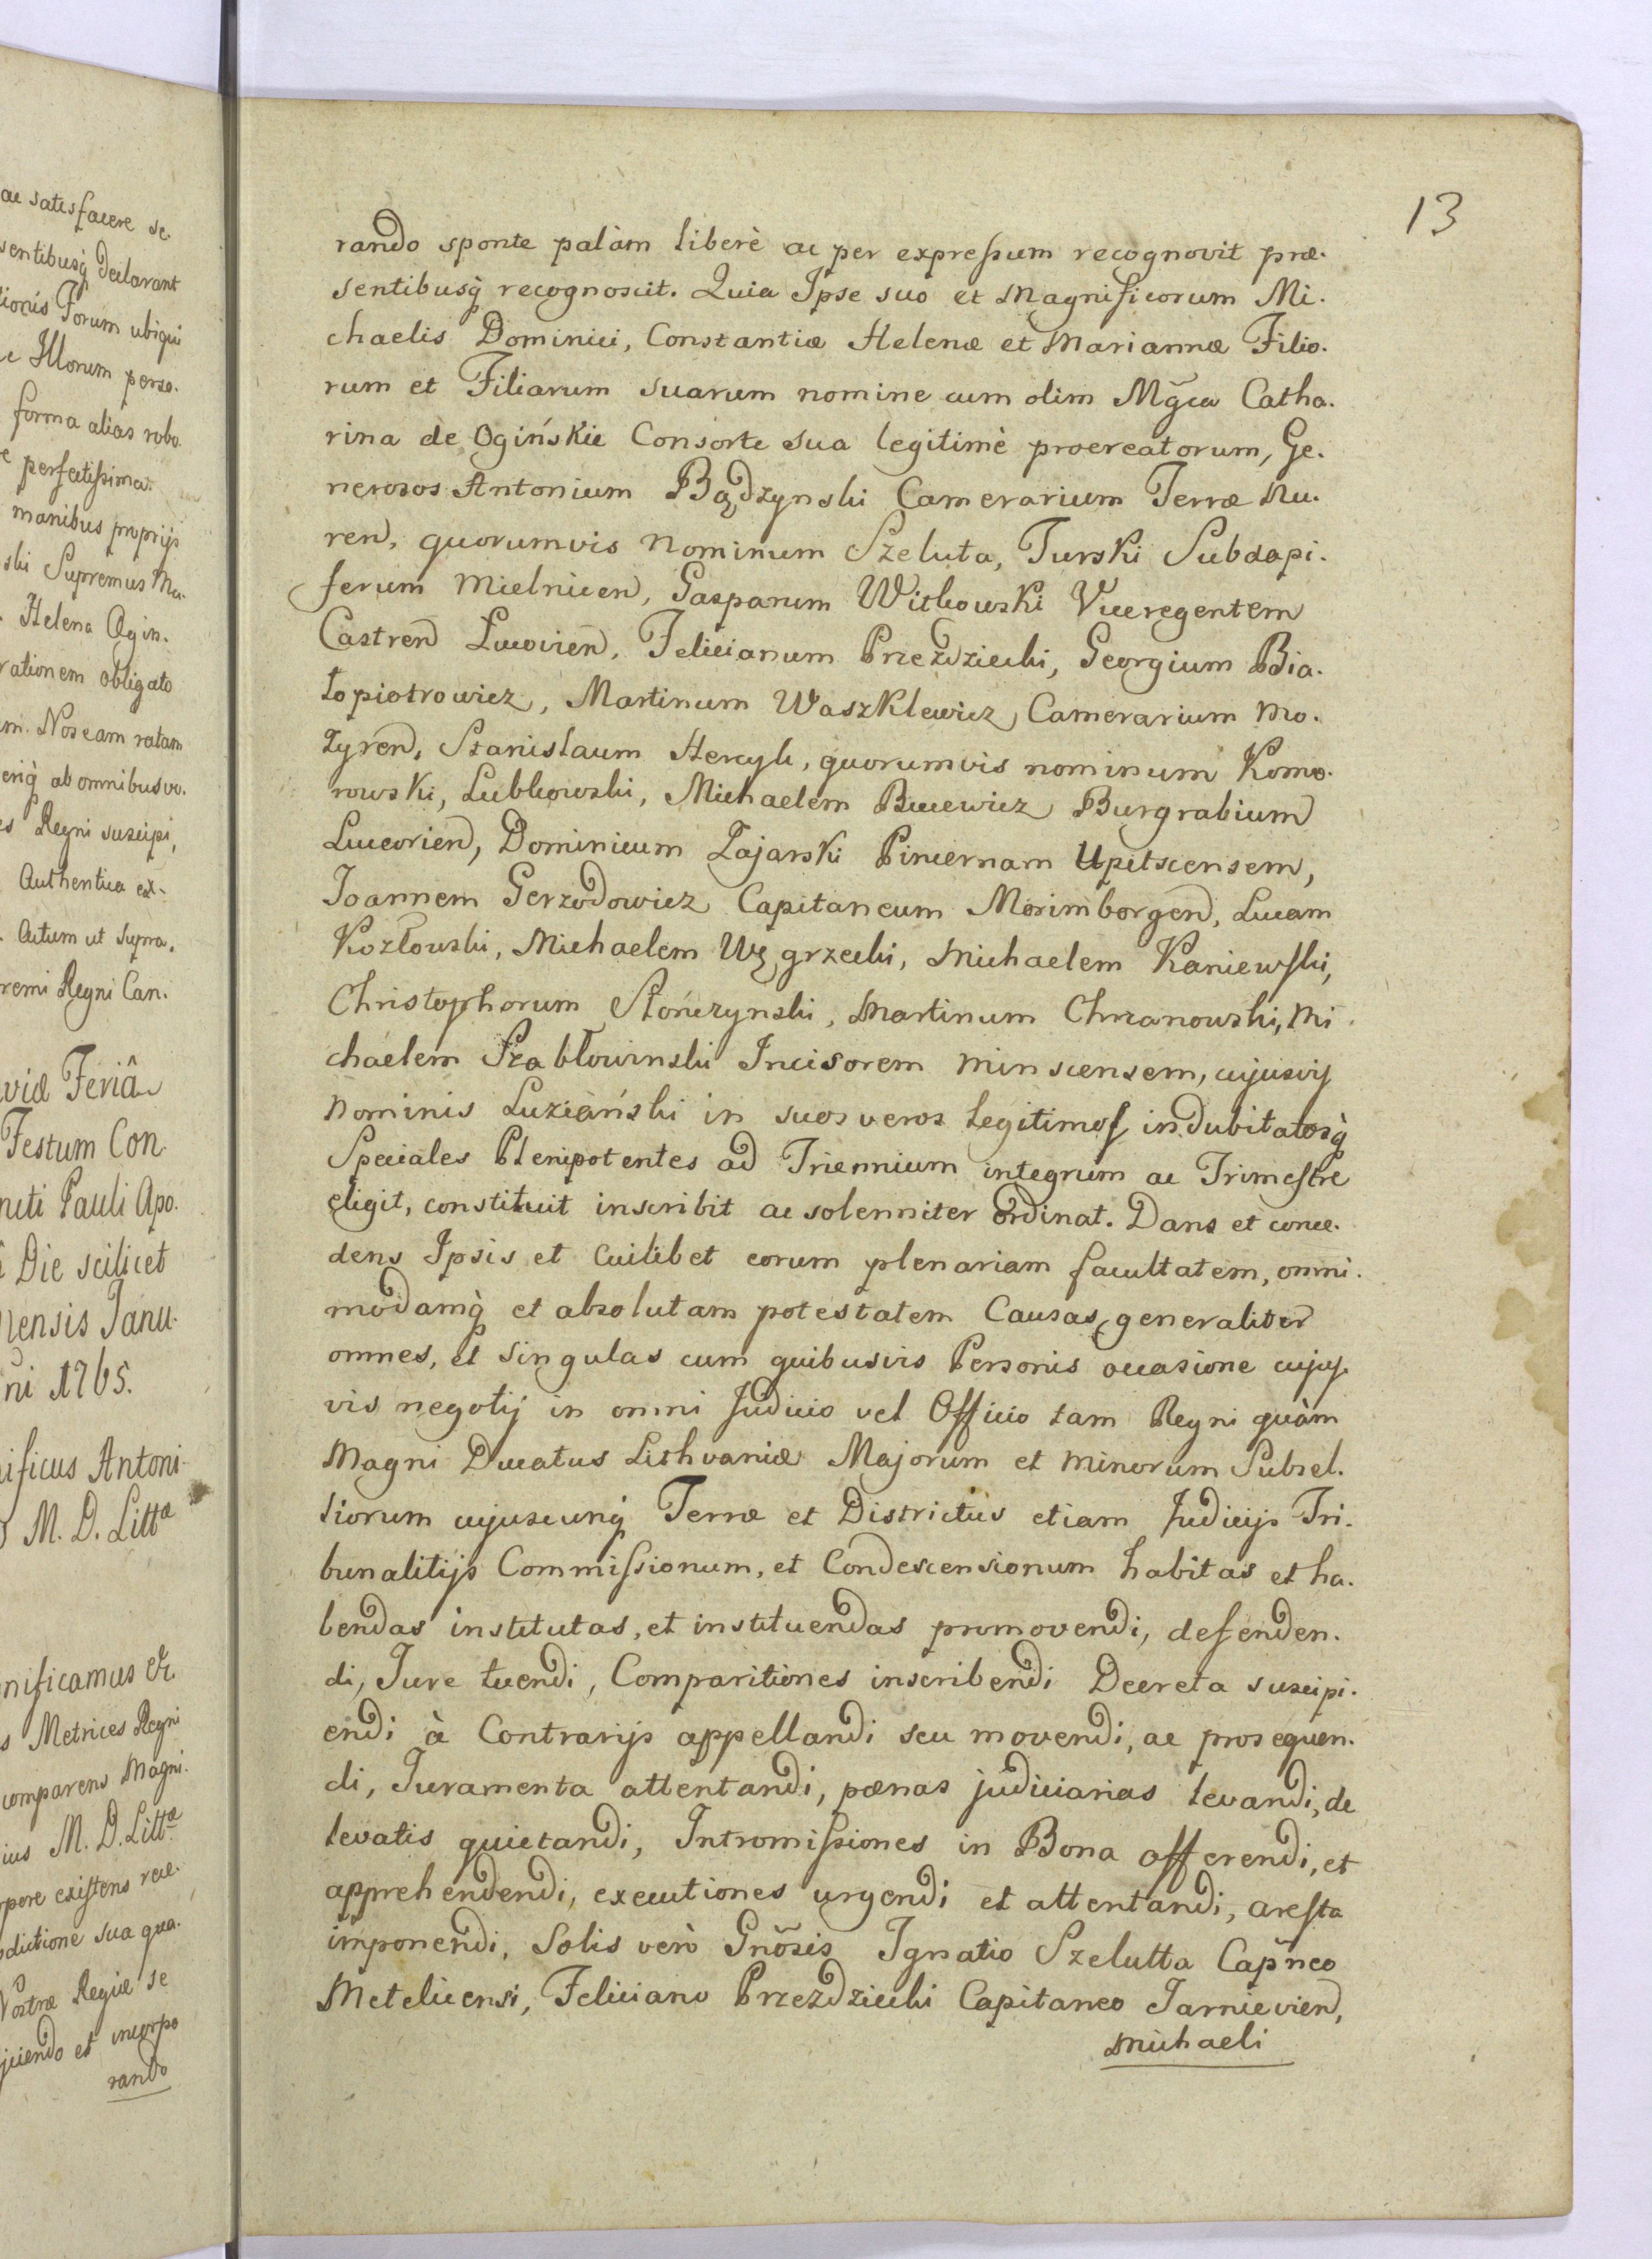 ac satisfacere se.
sentibusq́ declarant
tionis Forum ubiqui
Illorum perso.
forma alias robo.
perfectissima.
manibus proprijs
ski Supremus Ma.
Helena Ogin.
rationem obligato
m. Nos eam ratam
ab omnibus vo.
Regni suscipi,
Authentica ex.
Actum ut supra.
remi Regni Can.
Feriâ
Festum Con.
Pauli Apo.
Die scilicet
mensis Janu.
ni 1765.
ificus Antoni.
M. D. Littæ
nificamus &c.
Metrices Regni
comparens Magni.
ius M. D. Littæ
pore existens rece.
dictione sua qua.
Nostræ Regiæ se
jiciendo et incorpo
rando
13
rando sponte palàm liberè ac per expressum recognovit præ.
sentibusq́ recognoscit. Quia Ipse suo et Magnificorum Mi.
chaelis Dominici, Constantiæ Helenæ et Mariannæ Filio.
rum et Filiarum suarum nomine cum olim Mg̃ca Catha.
rina de Ogińskie Consorte sua legitimè procreatorum, Ge.
nerosos Antonium Bądzynski Camerarium Terræ Nu.
ren, quorumvis nominum Szeluta, Turski Subdapi.
ferum Mielnicen, Gasparum Witkowski Viceregentem
Castren Lucorien, Felicianum Przezdziecki, Georgium Bia.
łopiotrowicz, Martinum Waszklewicz Camerarium Mo.
zyren, Stanislaum Hercyk, quorumvis nominum Komo.
rowski, Lubkowski, Michaelem Bucewicz Burgrabium
Luceorien, Dominicum Zajarski Pincernam Upitscensem,
Joannem Gerzodowicz Capitaneum Morimborgen, Lucam
Kozłowski, Michaelem Węgrzecki, Michaelem Kaniewski,
Christophorum Słończynski, Martinum Chrzanowski, Mi
chaelem Szabłowinski Incisorem Minscensem, cujusvis
Nominis Luziański in suos veros legitimos indubitatosq́
Speciales Plenipotentes ad Triennium integrum ac Trimestre
eligit, constituit inscribit ac solenniter ordinat. Dans et conce.
dens Ipsis et cuilibet eorum plenariam facultatem, omni.
modamq́ et absolutam potestatem Causas generaliter
omnes, et singulas cum quibusvis Personis occasione cujus
vis negotij in omni Judicio vel Officio tam Regni quàm
Magni Ducatus Lithvaniæ Majorum et minorum Subsel.
liorum cujuscunq́ Terræ et Districtus etiam Judicijs Tri.
bunalitijs Commissionum, et Condescensionum habitas et ha.
bendas institutas, et instituendas promovendi, defenden.
di, Jure tuendi, Comparitiones inscribendi Decreta suscipi.
endi à Contrarijs appellandi seu movendi, ac prosequen.
di, Juramenta attentandi, pænas judiciarias levandi, de
levatis quietandi, Intromissiones in Bona offerendi, et
apprehendendi, executiones urgendi et attentandi, aresta
imponendi, Solis verò Gnõsis Ignatio Szelutta Cap̃neo
Metelicensi, Feliciano Przezdziecki Capitaneo Jarnievien,
Michaeli